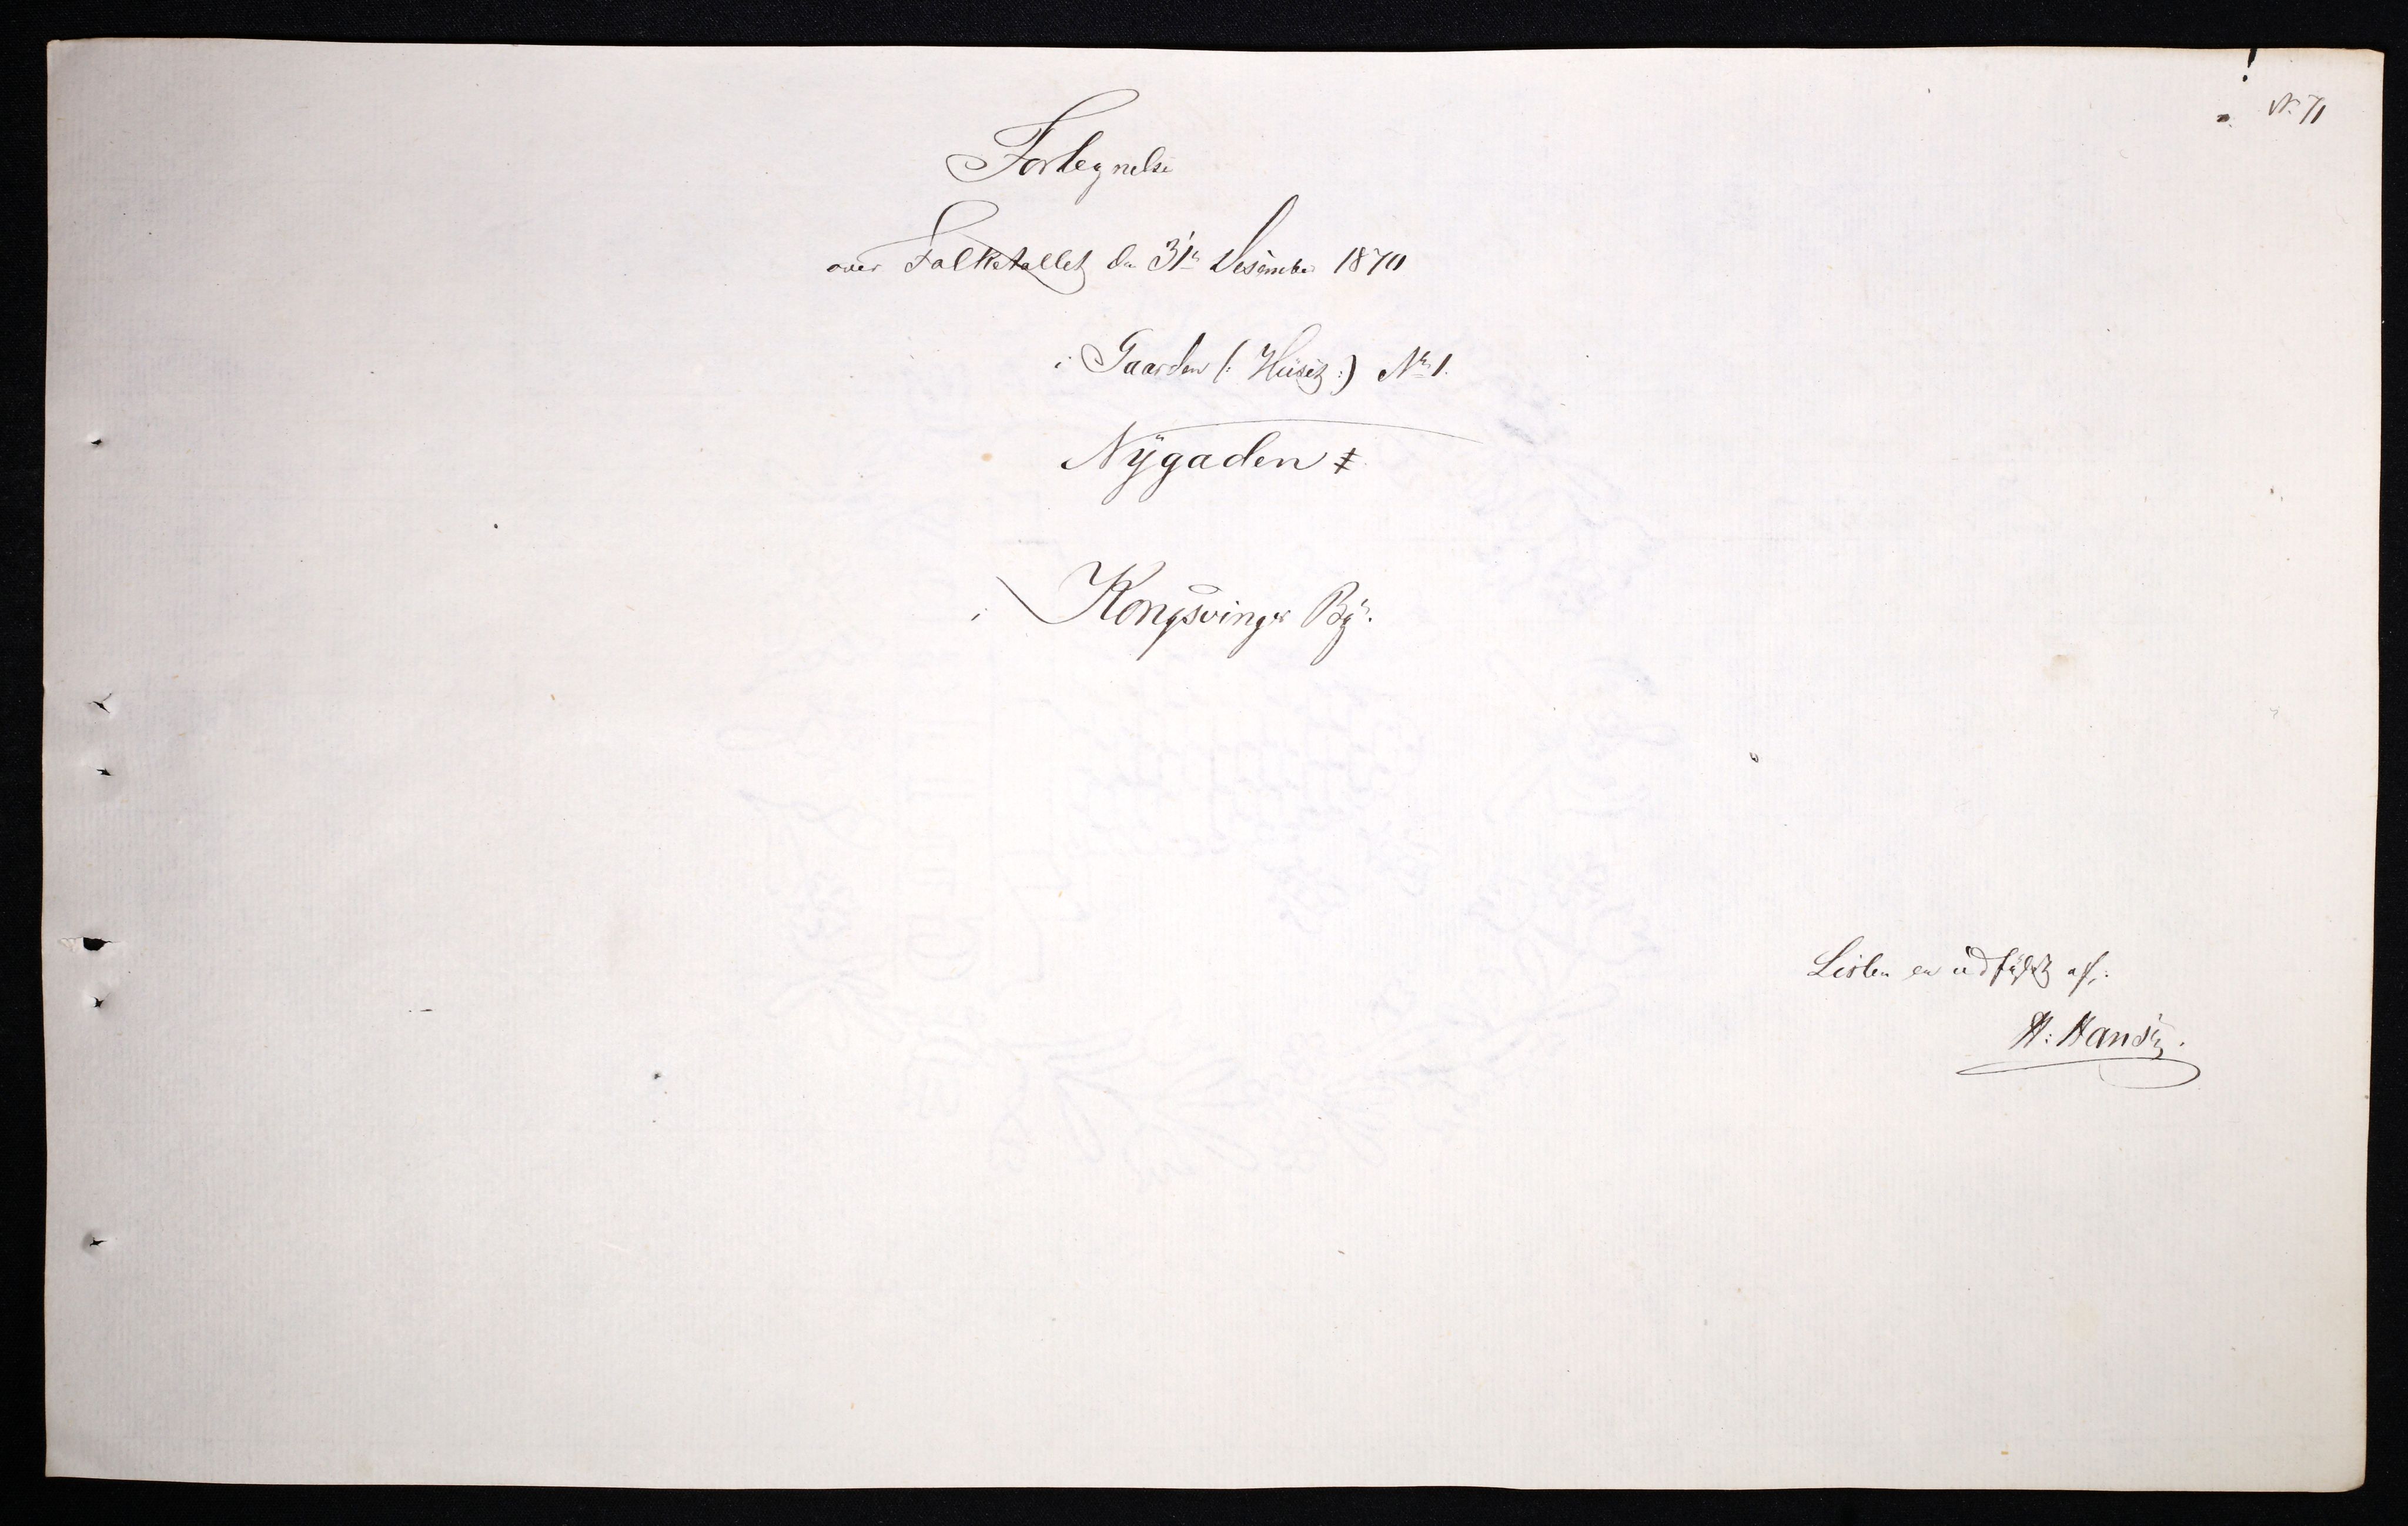 N: 71
Fortegnelse
over Folketallet den 31te Desember 1870
i Gaarden (: Huset :) No 1.
Nÿgaden
i Kongsvinger By.
Listen er udfÿlt af:
H: Hansen.